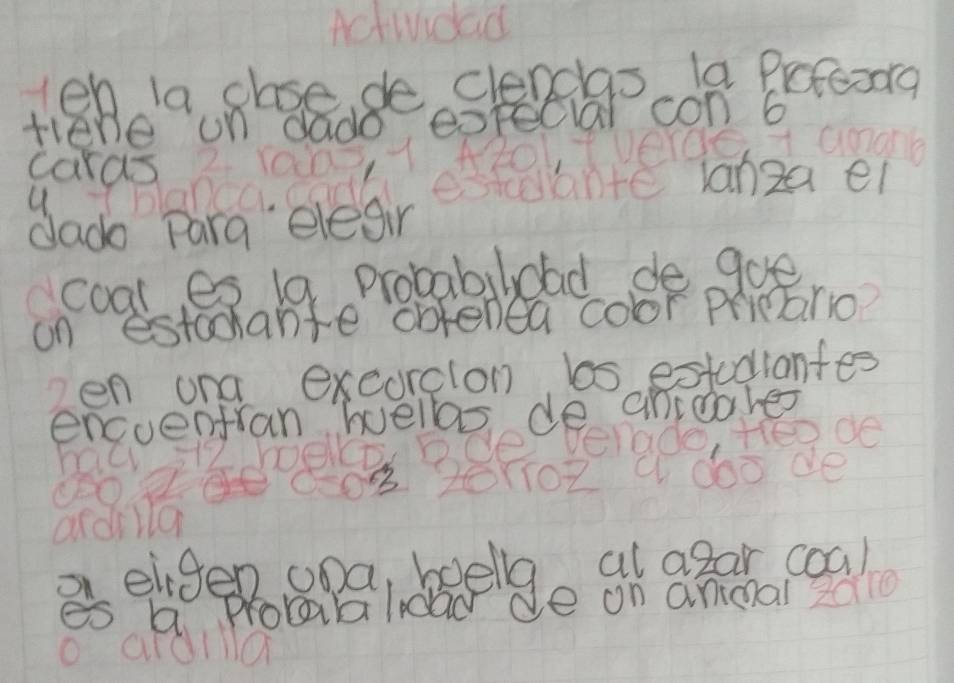 Actividad
1 en la clase de ciencias la Profesora
tiene un dado especial con 6
caras 2 rojas, 1 Azol, 1 verde, 1 amarilo
y 1 blanca. cada estodiante lanza el
dado Para elegir
coal es la Probabilidad de que
on estodiante obtenga color primario?
2 en una excorcion los estudiantes
encuentran huellas de animales
hay 12 hoellas, 5 de venado, tres de
oso 2 zorroz y dos de
ardilla
eligen una hoella al azar coal
es la probabilidad de un animal zorro
o ardilla